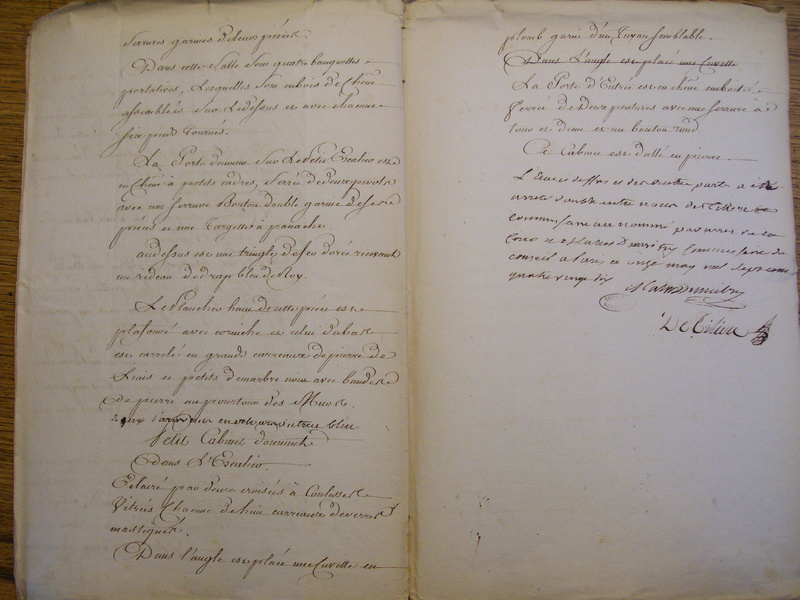 Serrures garnies de leurs pièces.
Dans cette Salle Sont quatre banquettes
portatives, Lesquelles Sont en bois de Chêne
assemblées Sur Le dessus et avec chacune
Six pieds Tournés.
La Porte donnant Sur Le Petit Escalier est
en Chêne à petits cadres, ferrée de deux pivots
avec une Serrure Bouton double garnie de ses
pièces et une Targette à panache.
au dessus est une tringle de fer dorée recevant
un rideau de drap bleu de Roy.
Le Plancher haut de cette pièce est
plafonné avec corniche et celui du bas
est carrelé en grands carreaux de pierre de
Liais et petits de marbre noir avec bandes
de pierre au pourtour des Murs.
bleu
Petit Cabinet donnant
Dans L'Escalier.
Eclairé par deux croisées à Coulisses
Vitrés Chacune de huit carreaux de verres
mastiqués.
Dans l'angle est placé une Cuvette en
plomb garni d'un Tuyau Semblable.
Dans L'angle est placé une Cuvette
La Porte d'Entrée est en chêne emboité
ferrée de deux pentures avec une serrure à
tour et demi et un bouton rond.
Ce Cabinet est dallé en pierre.
L'Etat ci dessus et des autres parts a été
arresté double entre nous
commissaire nommé par arrest de la
Cour commissaire du
conseil a Paris ce onze may mil sept cent
quatre vingt dix
De Tilliere